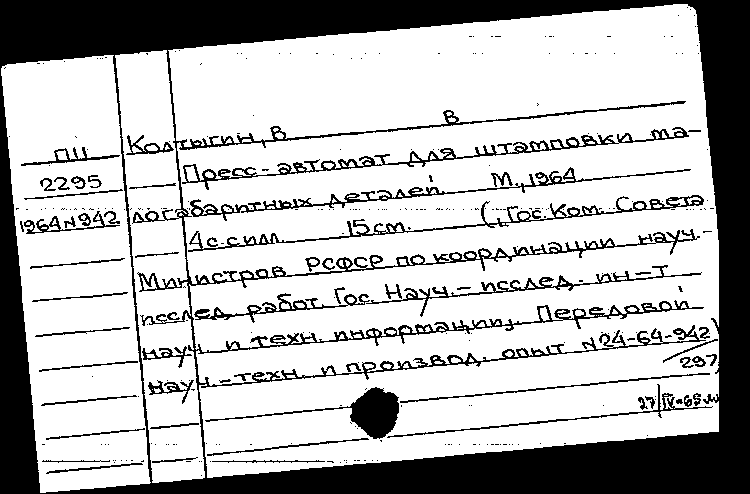 Колтыгин, В В
ПЦ
Пресс-автомат для штамповки ма-
2295
логабаритных деталей. М., 1964
1964 N 942
4 с. с илл. 15 см. (Гос. Ком. Совета
Министров РСФСР по координации науч.-
исслед. работ. Гос. Науч.-исслед. ин-т
науч. и техн. информации. Передовой
науч.-техн. и производ. опыт N 24-64-942)
297
27/IV-65